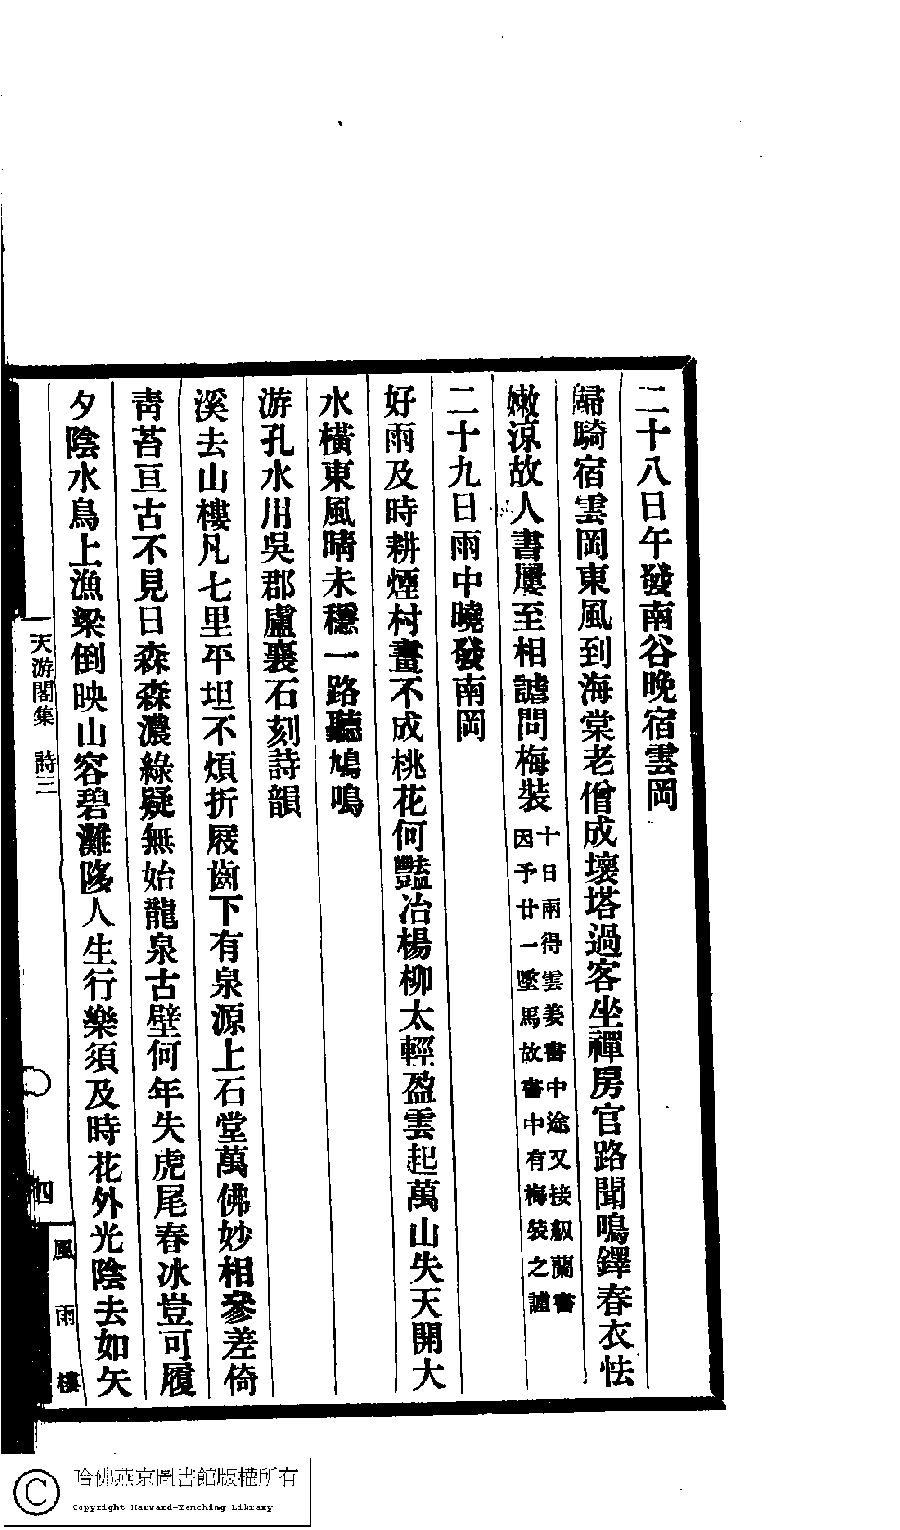 二十八日午發南谷晚宿雲岡
歸騎宿雲岡東風到海棠老僧成壞塔過客坐禪房官路聞鳴鐸春衣怯
嫩涼故人書屢至相謔問梅裝
十日兩得雲姜書中途又接紉蘭書
因予廿一墜馬故書中有梅裝之謔
二十九日雨中曉發南岡
好雨及時耕煙村畫不成桃花何豔冶楊柳太輕盈雲起萬山失天開大
水橫東風晴未穩一路聽鳩鳴
游孔水用吳郡盧襄石刻詩韻
溪去山樓凡七里平坦不煩折屐齒下有泉源上石堂萬佛妙相參差倚
靑苔亘古不見日森森濃綠疑無始龍泉古壁何年失虎尾春冰豈可履
夕陰水鳥上漁梁倒映山容碧灘陊人生行樂須及時花外光陰去如矢
天游閣集 詩三
四
風雨樓
哈佛燕京圖書館版權所有
Copyright Harvard-Yenching Library